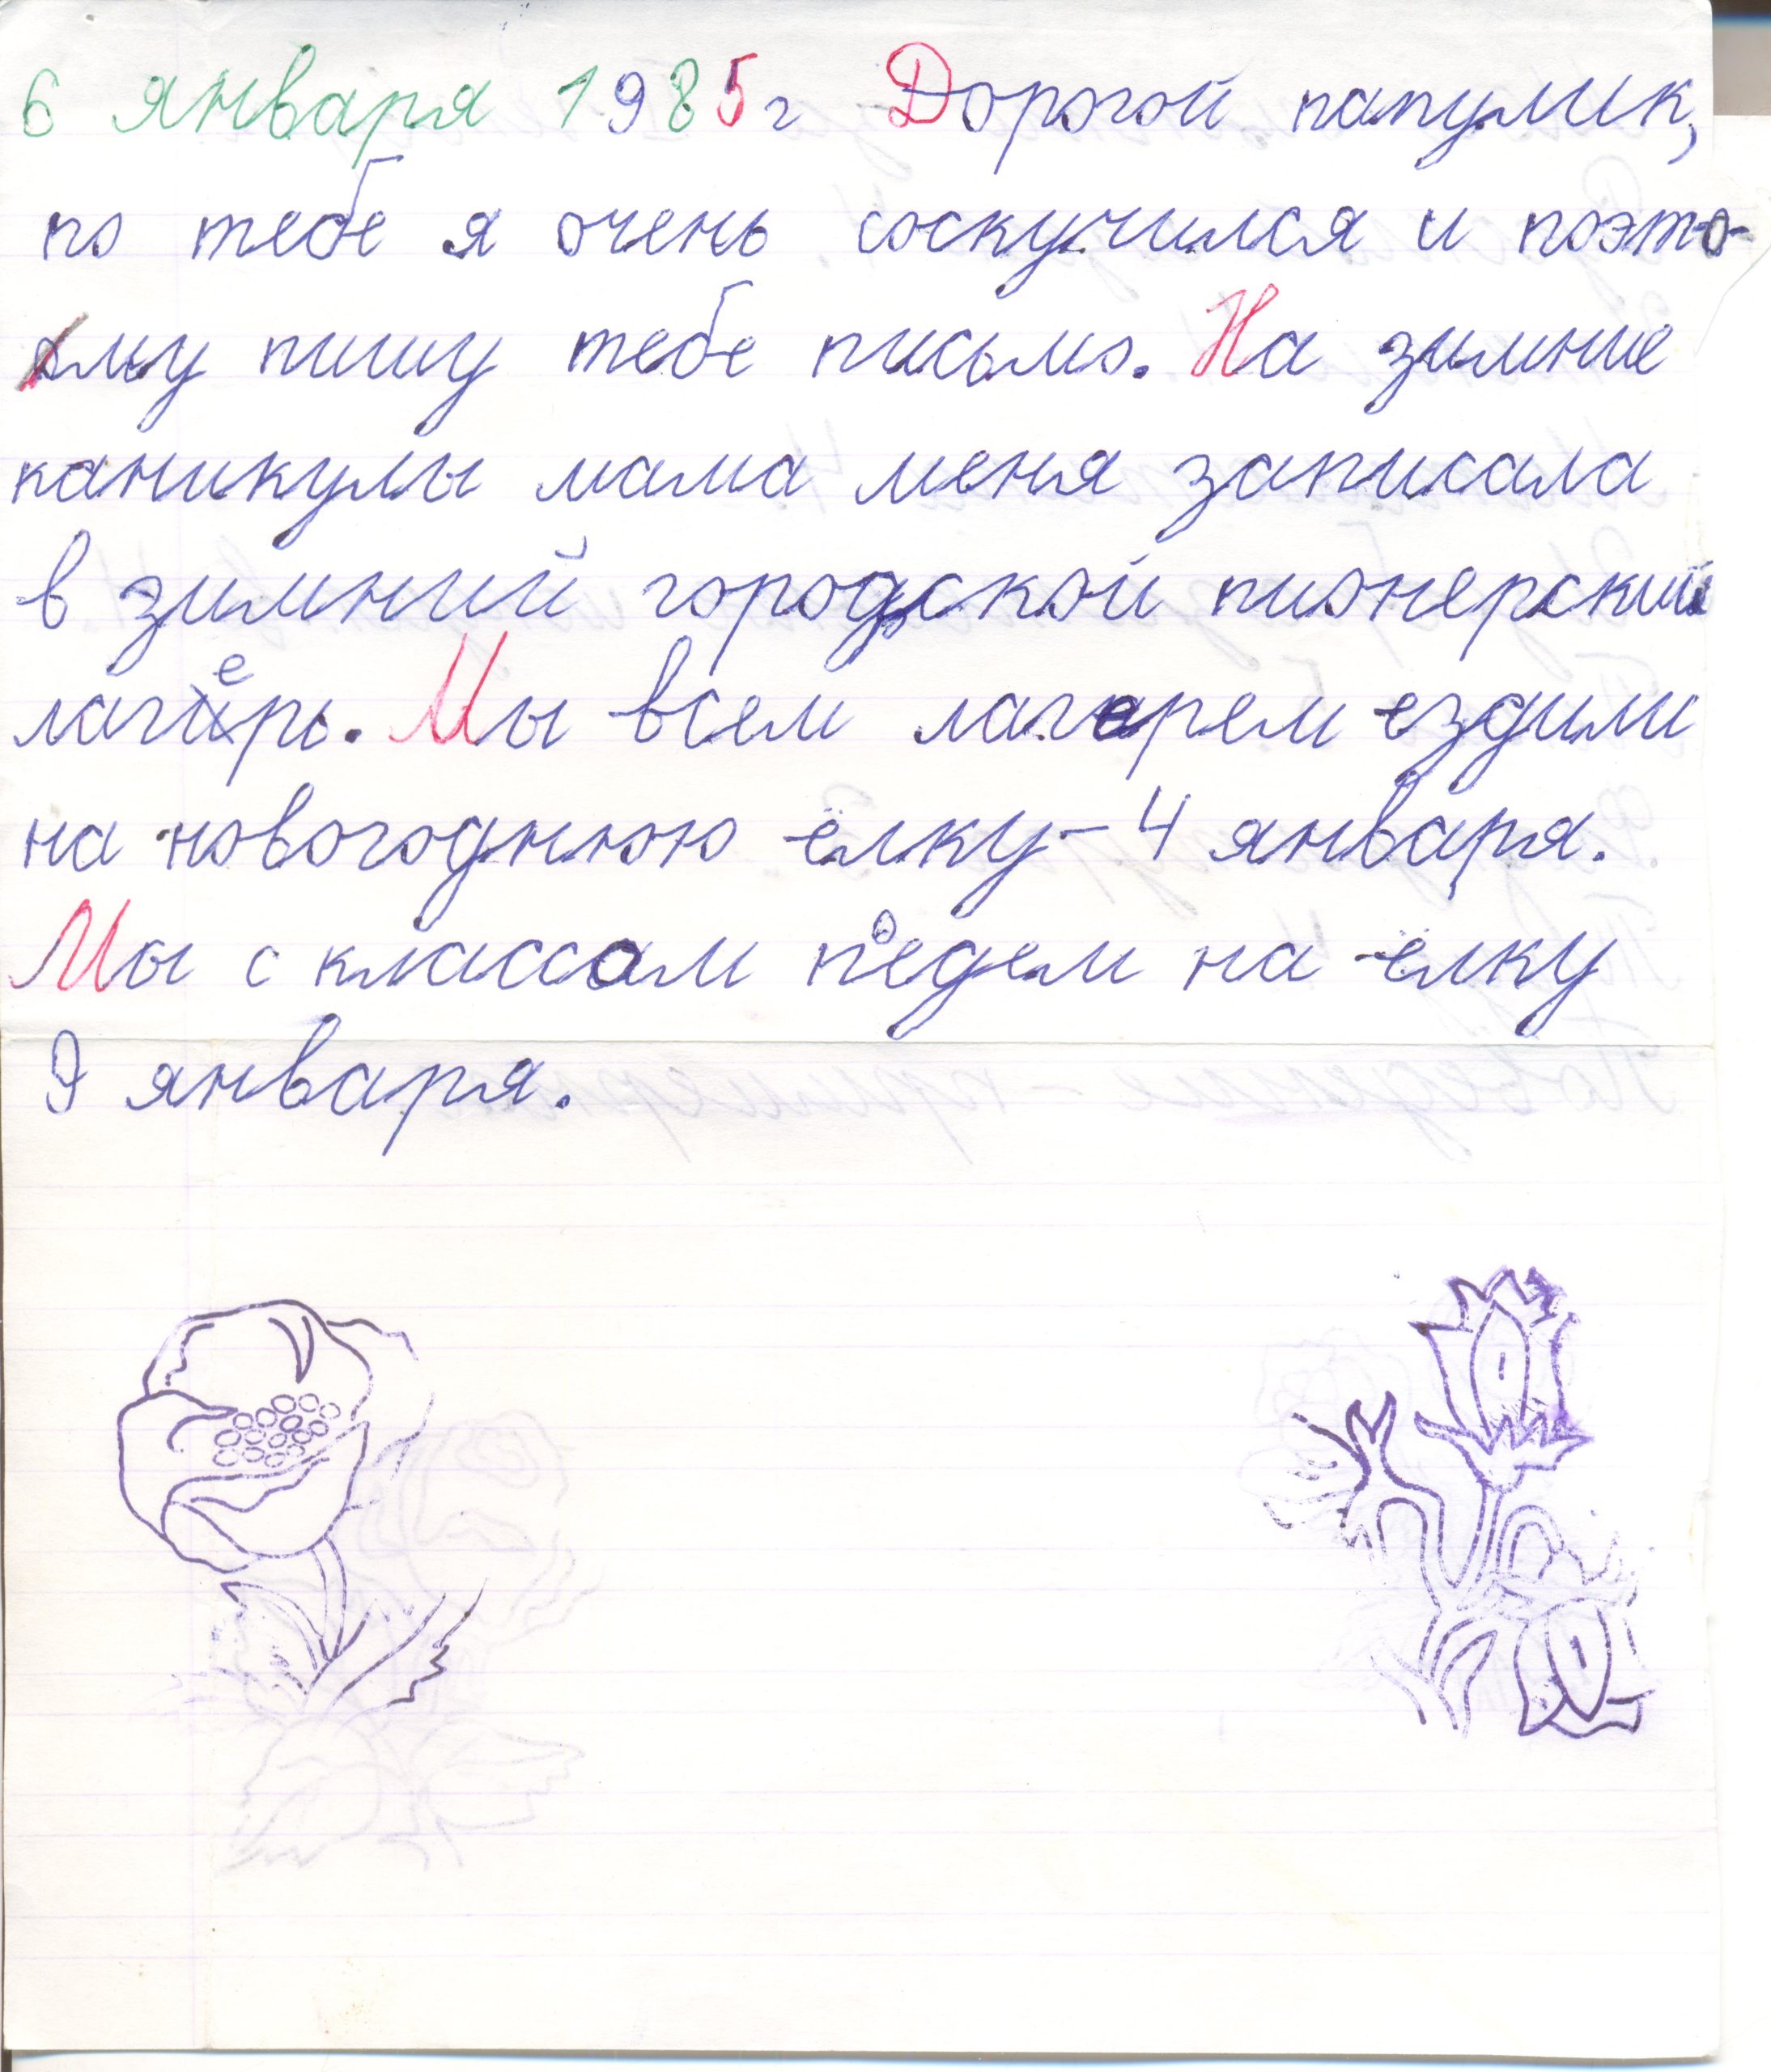 6 января 1985г Дорогой папулик,
по тебе я очень соскучился и поэто-
му пишу тебе письмо. На зимние
каникулы мама меня записала
в зимний городской пионерский
лагерь. Мы всем лагерем ездили
на новогоднюю ёлку - 4 января.
Мы с классом поедем на ёлку
9 января.